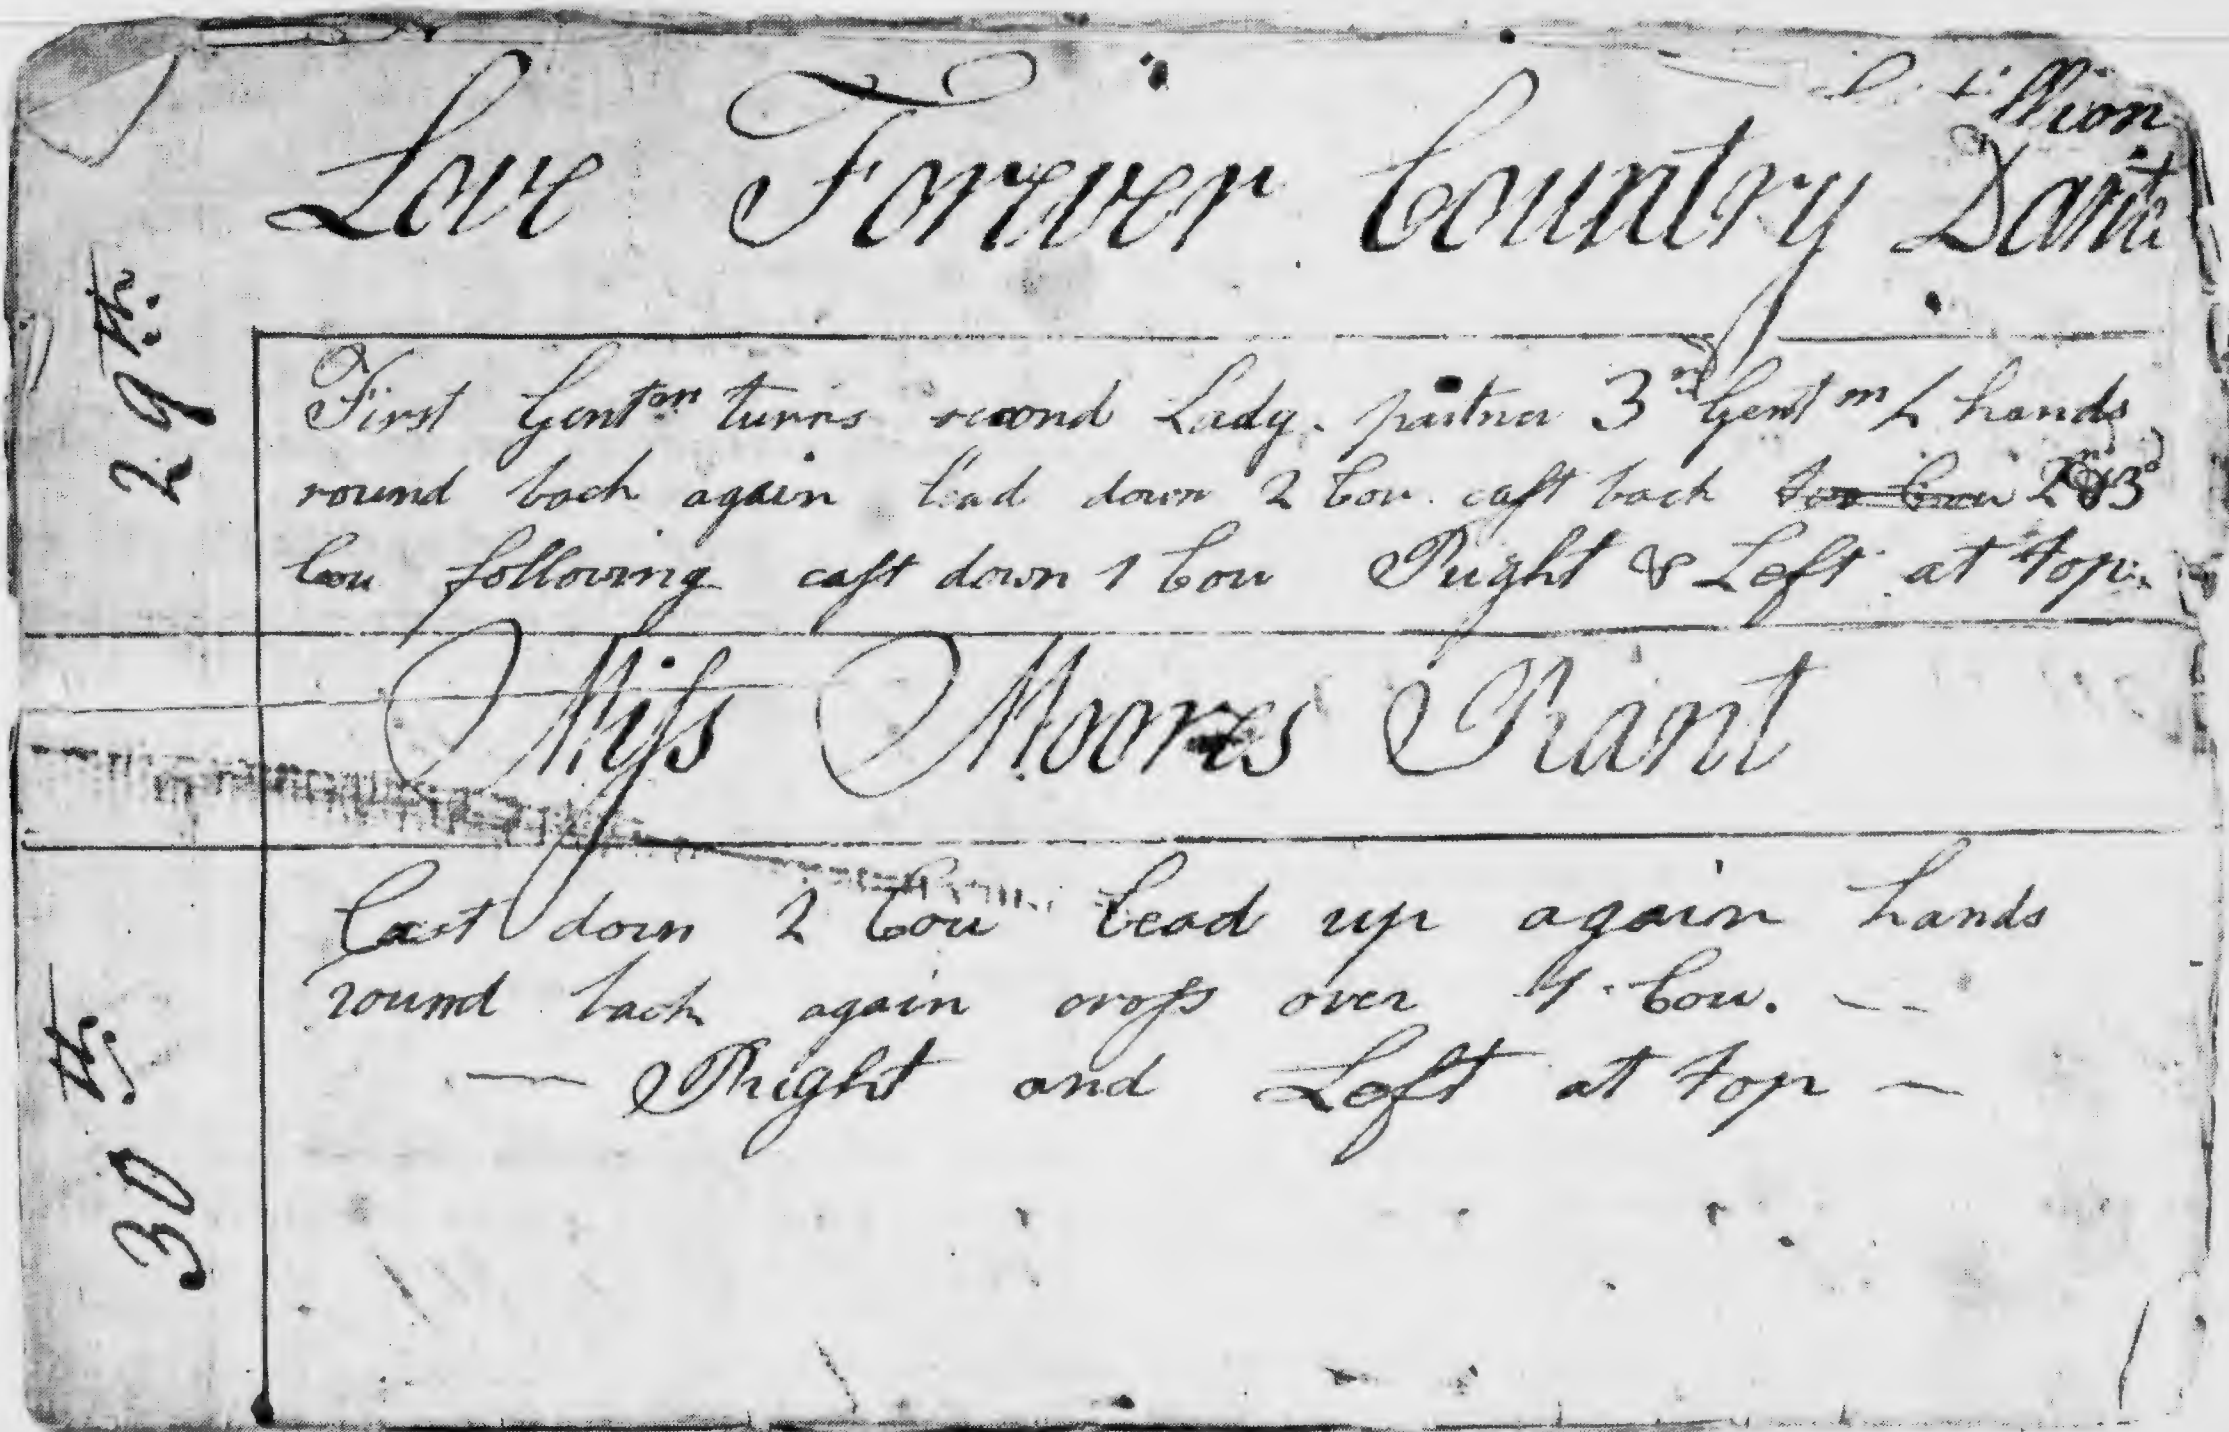 llion
Love Forever Country Dance
29th.
First Gentm turns second Lady. partner 3rd Gentm 4 hands
round back again lead down 2 Cou. cast back 2nd & 3d
Cou following cast down 1 Cou Right & Left at top.
Miss Moores Rant
30th.
Cast down 2 Cou lead up again hands
round back again cross over 1 Cou. --
— Right and Left at top —